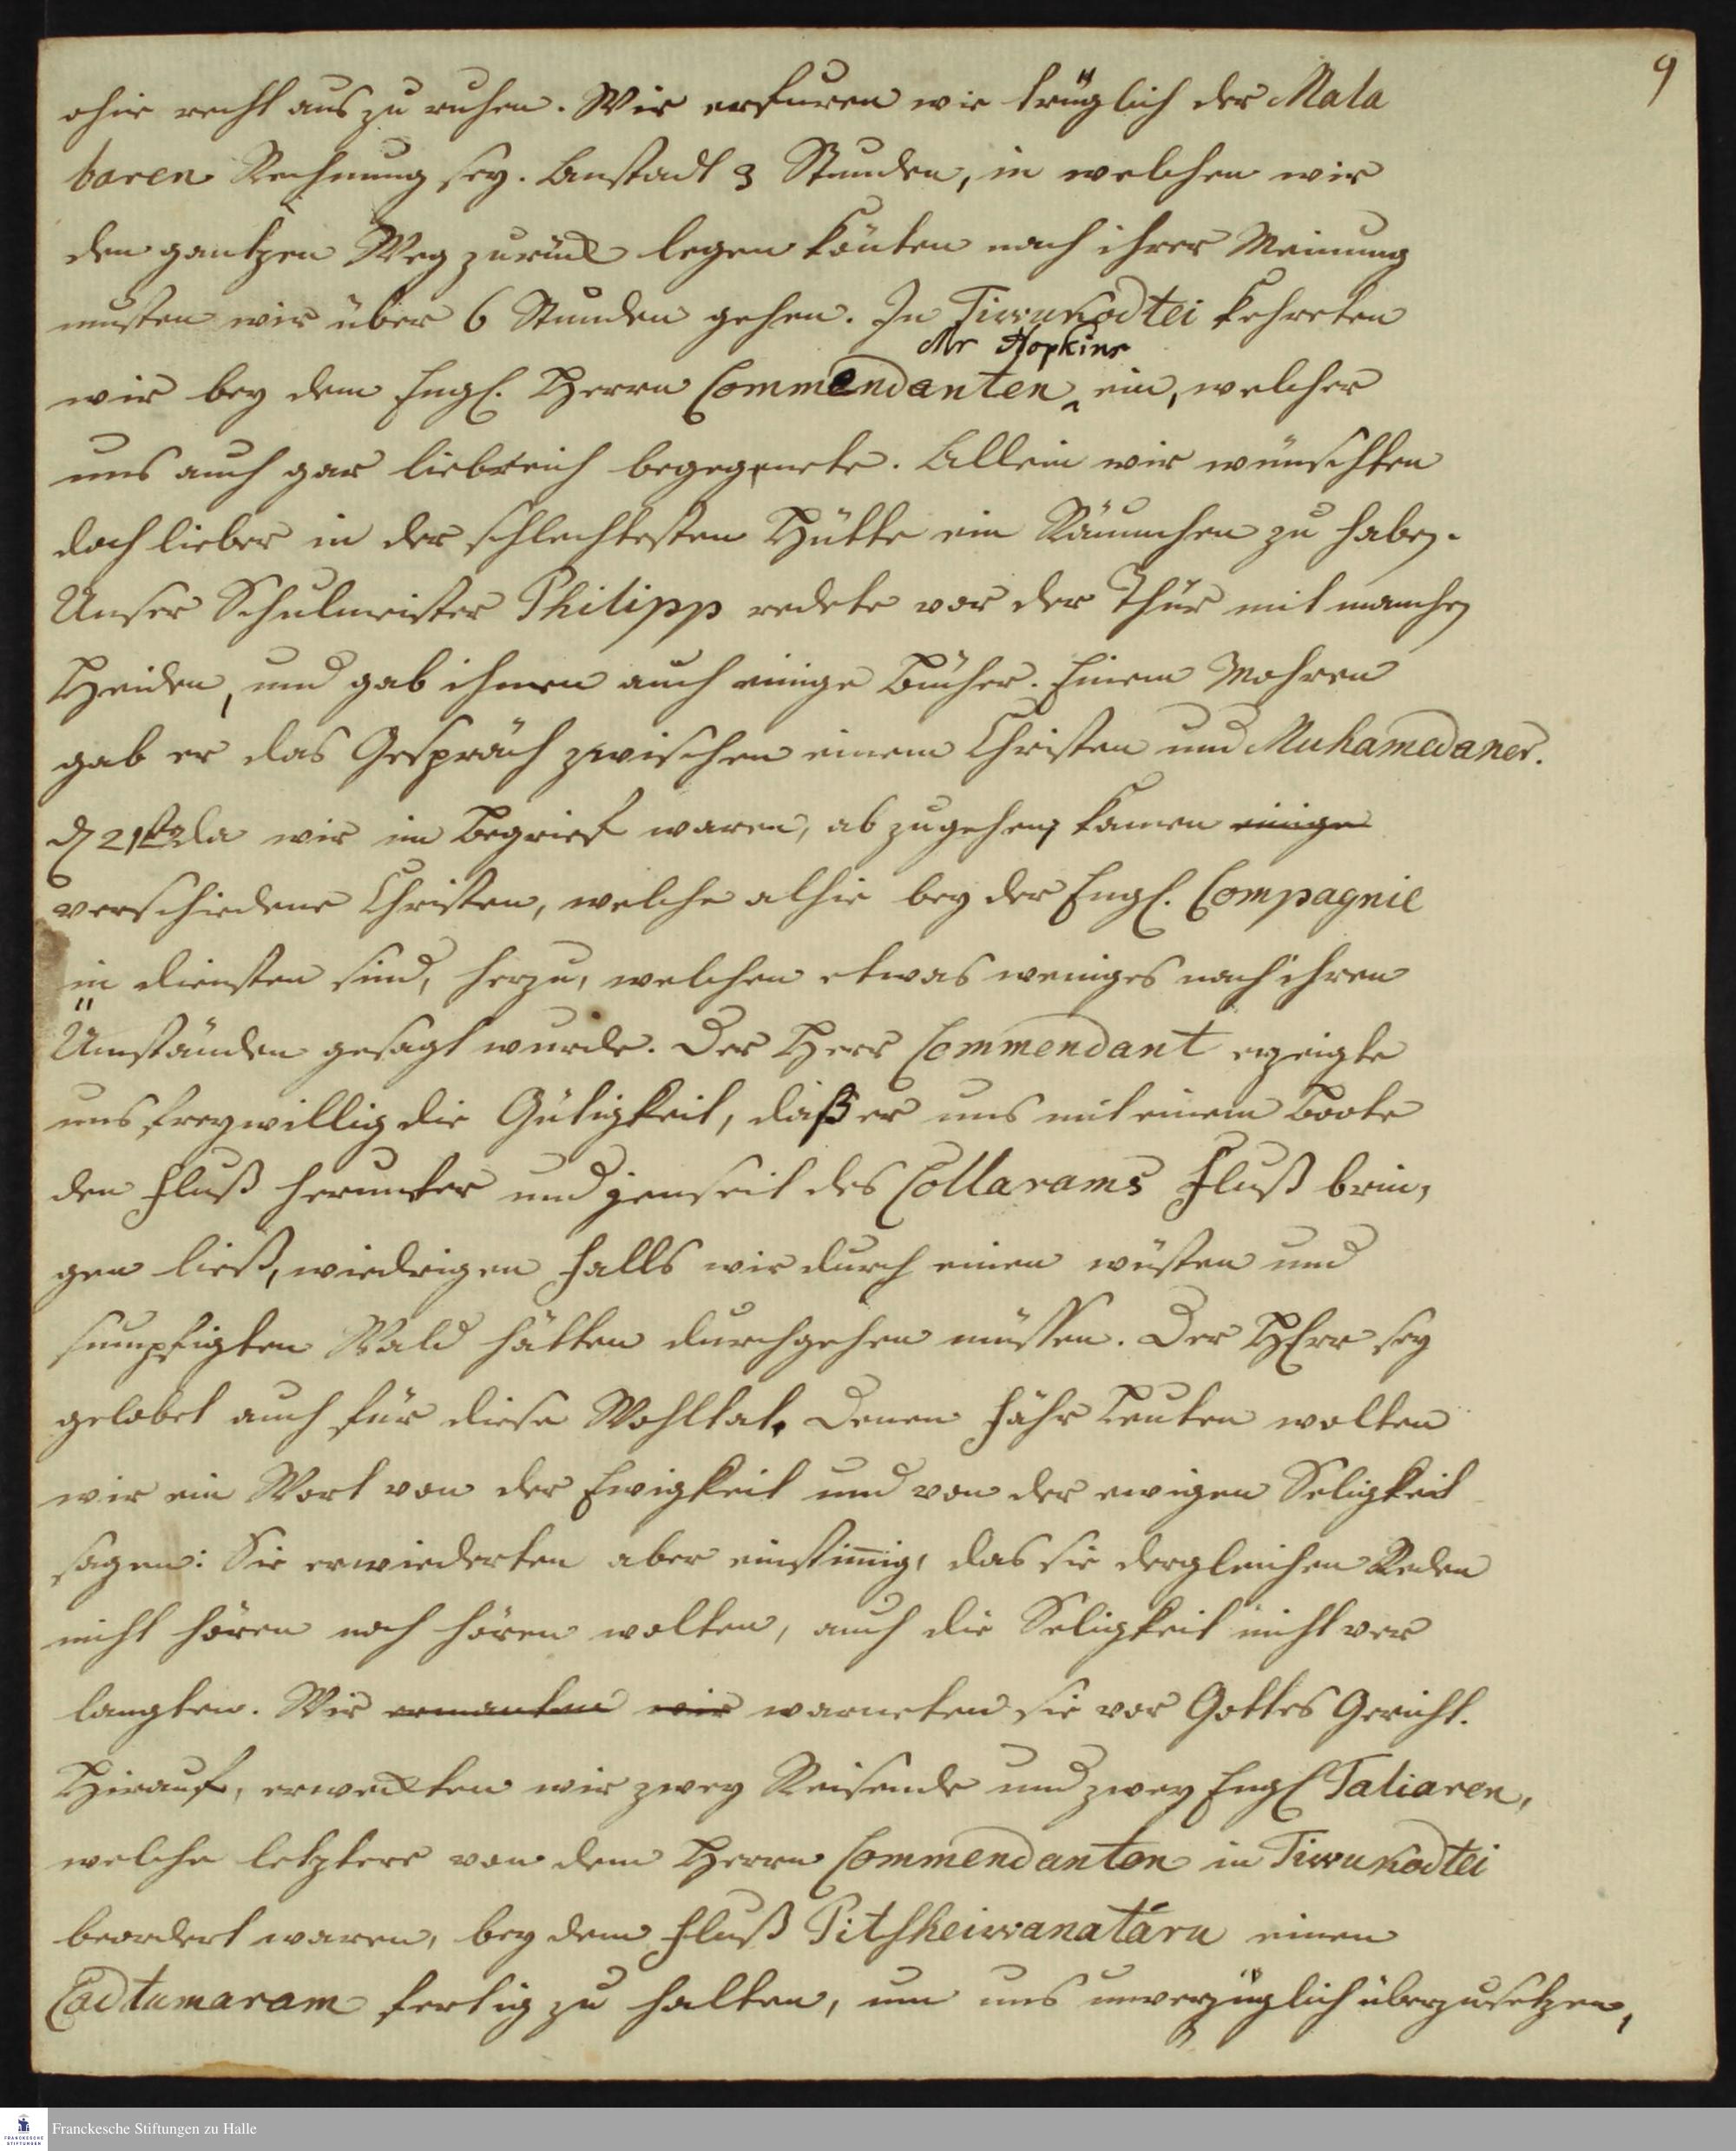 9
ohie recht aus zu ruhen. Wir erfuren wie trüglich der Mala
baren Rechnung sey. Anstadt 3 Stunden, in welchen wir
den gantzen Weg zurück legen könten nach ihrer Meinung
musten wir über 6 Stunden gehen. In Tirukodtei kehreten
Mr Hopkins
wir bey dem Engl. Herrn Commendanten ein, welcher
uns auch gar liebreich begegnete. Allein wir wünschten
doch lieber in der schlechtesten Hütte ein Räumchen zu haben.
Unser Schulmeister Philipp redete vor der Thür mit manchen
Heiden, und gab ihnen auch einige Bücher. Einem Mohren
gab er das Gespräch zwischen einem Christen und Muhamedaner.
d 21ten da wir im Begrief waren, abzugehen, kamen einige
verschiedene Christen, welche alhie bey der Engl. Compagnie
in diensten sind, herzu, welchen etwas weniges nach ihren
Umständen gesagt wurde. Der Herr Commendant erzeigte
uns freywillig die Gütigkeit, daß er uns mit einem Boote
den Fluß herunter und jenseit des Collarams Fluß brin,
gen ließ, wiedrigen Falls wir durch einen wüsten und
sumpfigten Wald hätten durchgehen müssen. Der HErr sey
gelobet auch für diese Wohltat. Denen Fähr Leuten wolten
wir ein Wort von der Ewigkeit und von der ewigen Seligkeit
sagen: Sie erwiederten aber einstimig, das sie dergleichen Reden
nicht hören noch hören wolten, auch die Seligkeit nicht ver
langten. Wir ermanten wir warneten sie vor Gottes Gericht.
Hierauf, erweckten wir zwey Reisende und zwey Engl Taliaren,
welche letztere von dem Herrn Commendanten in Tirukodtei
beordert waren, bey dem Fluß Pitsheiwanatáru einen
Cadtumaram fertig zu halten, um uns unverzüglich überzusetzen,
Franckesche Stiftungen zu Halle